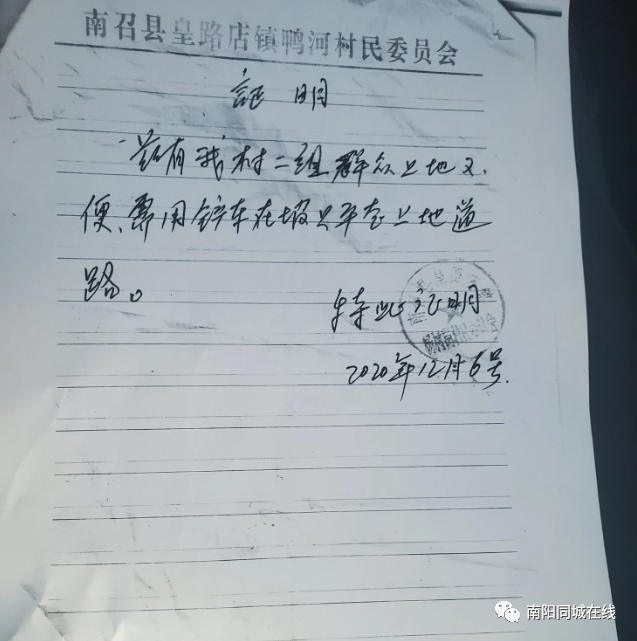 南召县皇路店镇鸭河村民委员会
证明
兹有我村二组群众上地不
便、需用铲车在坡上平整上地道
路。
特此证明
2020年12月6号.
南阳同城在线